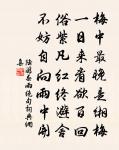 梅中最晚是緗梅
一日來看欲百回
俗紫凡紅終避舍
不妨自向雨中開
陸游春雨絕句詞典網
集